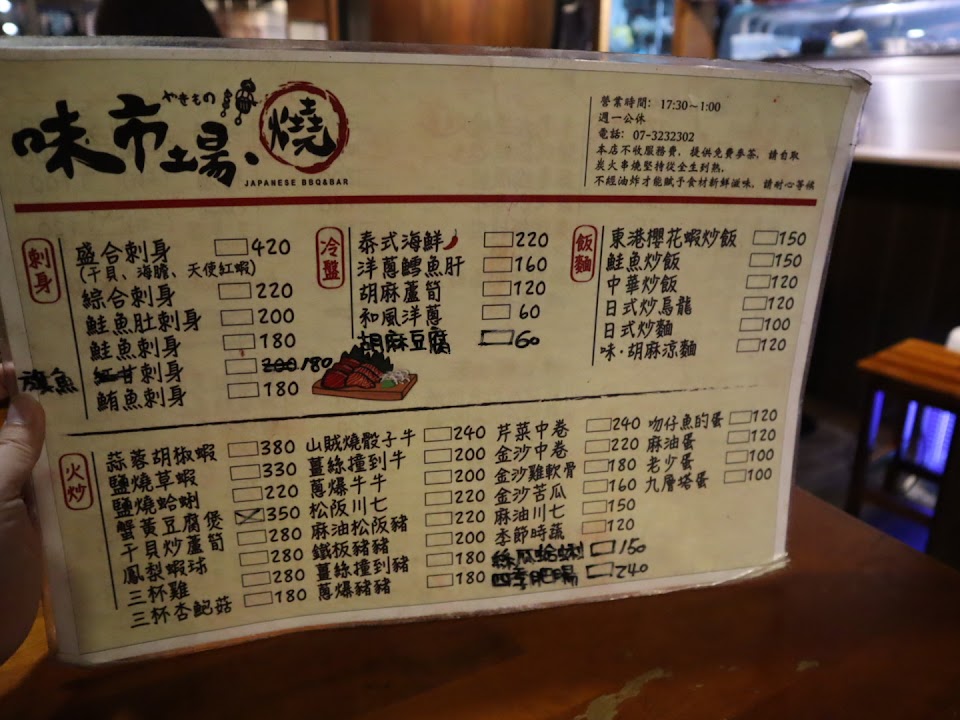 味市場・燒
やきもの
JAPANESE BBQ&BAR
營業時間: 17:30~1:00
週一公休
電話: 07-3232302
本店不收服務費, 提供免費麥茶, 請自取
炭火串燒堅持從全生到熟,
不經油炸才能賦予食材新鮮滋味, 請耐心等候
刺身
盛合刺身 420
(干貝、海膽、天使紅蝦)
綜合刺身 220
鮭魚肚刺身 200
鮭魚刺身 180
旗魚 紅甘刺身 200 180
鮪魚刺身 180
冷盤
泰式海鮮 220
洋蔥鱈魚肝 160
胡麻蘆筍 120
和風洋蔥 60
胡麻豆腐 60
飯麵
東港櫻花蝦炒飯 150
鮭魚炒飯 150
中華炒飯 120
日式炒烏龍 120
日式炒麵 100
味・胡麻涼麵 120
火炒
蒜蓉胡椒蝦 380
鹽燒草蝦 330
鹽燒蛤蜊 220
蟹黃豆腐煲 350
干貝炒蘆筍 280
鳳梨蝦球 280
三杯雞 280
三杯杏鮑菇 180
山賊燒骰子牛 240
薑絲撞到牛 200
蔥爆牛牛 200
松阪川七 220
麻油松阪豬 220
鐵板豬豬 200
薑絲撞到豬 180
蔥爆豬豬 180
芹菜中卷 240
金沙中卷 220
金沙雞軟骨 180
金沙苦瓜 160
麻油川七 150
季節時蔬 120
絲瓜蛤蜊 150
四季肥腸 240
吻仔魚的蛋 120
麻油蛋 120
老少蛋 100
九層塔蛋 100